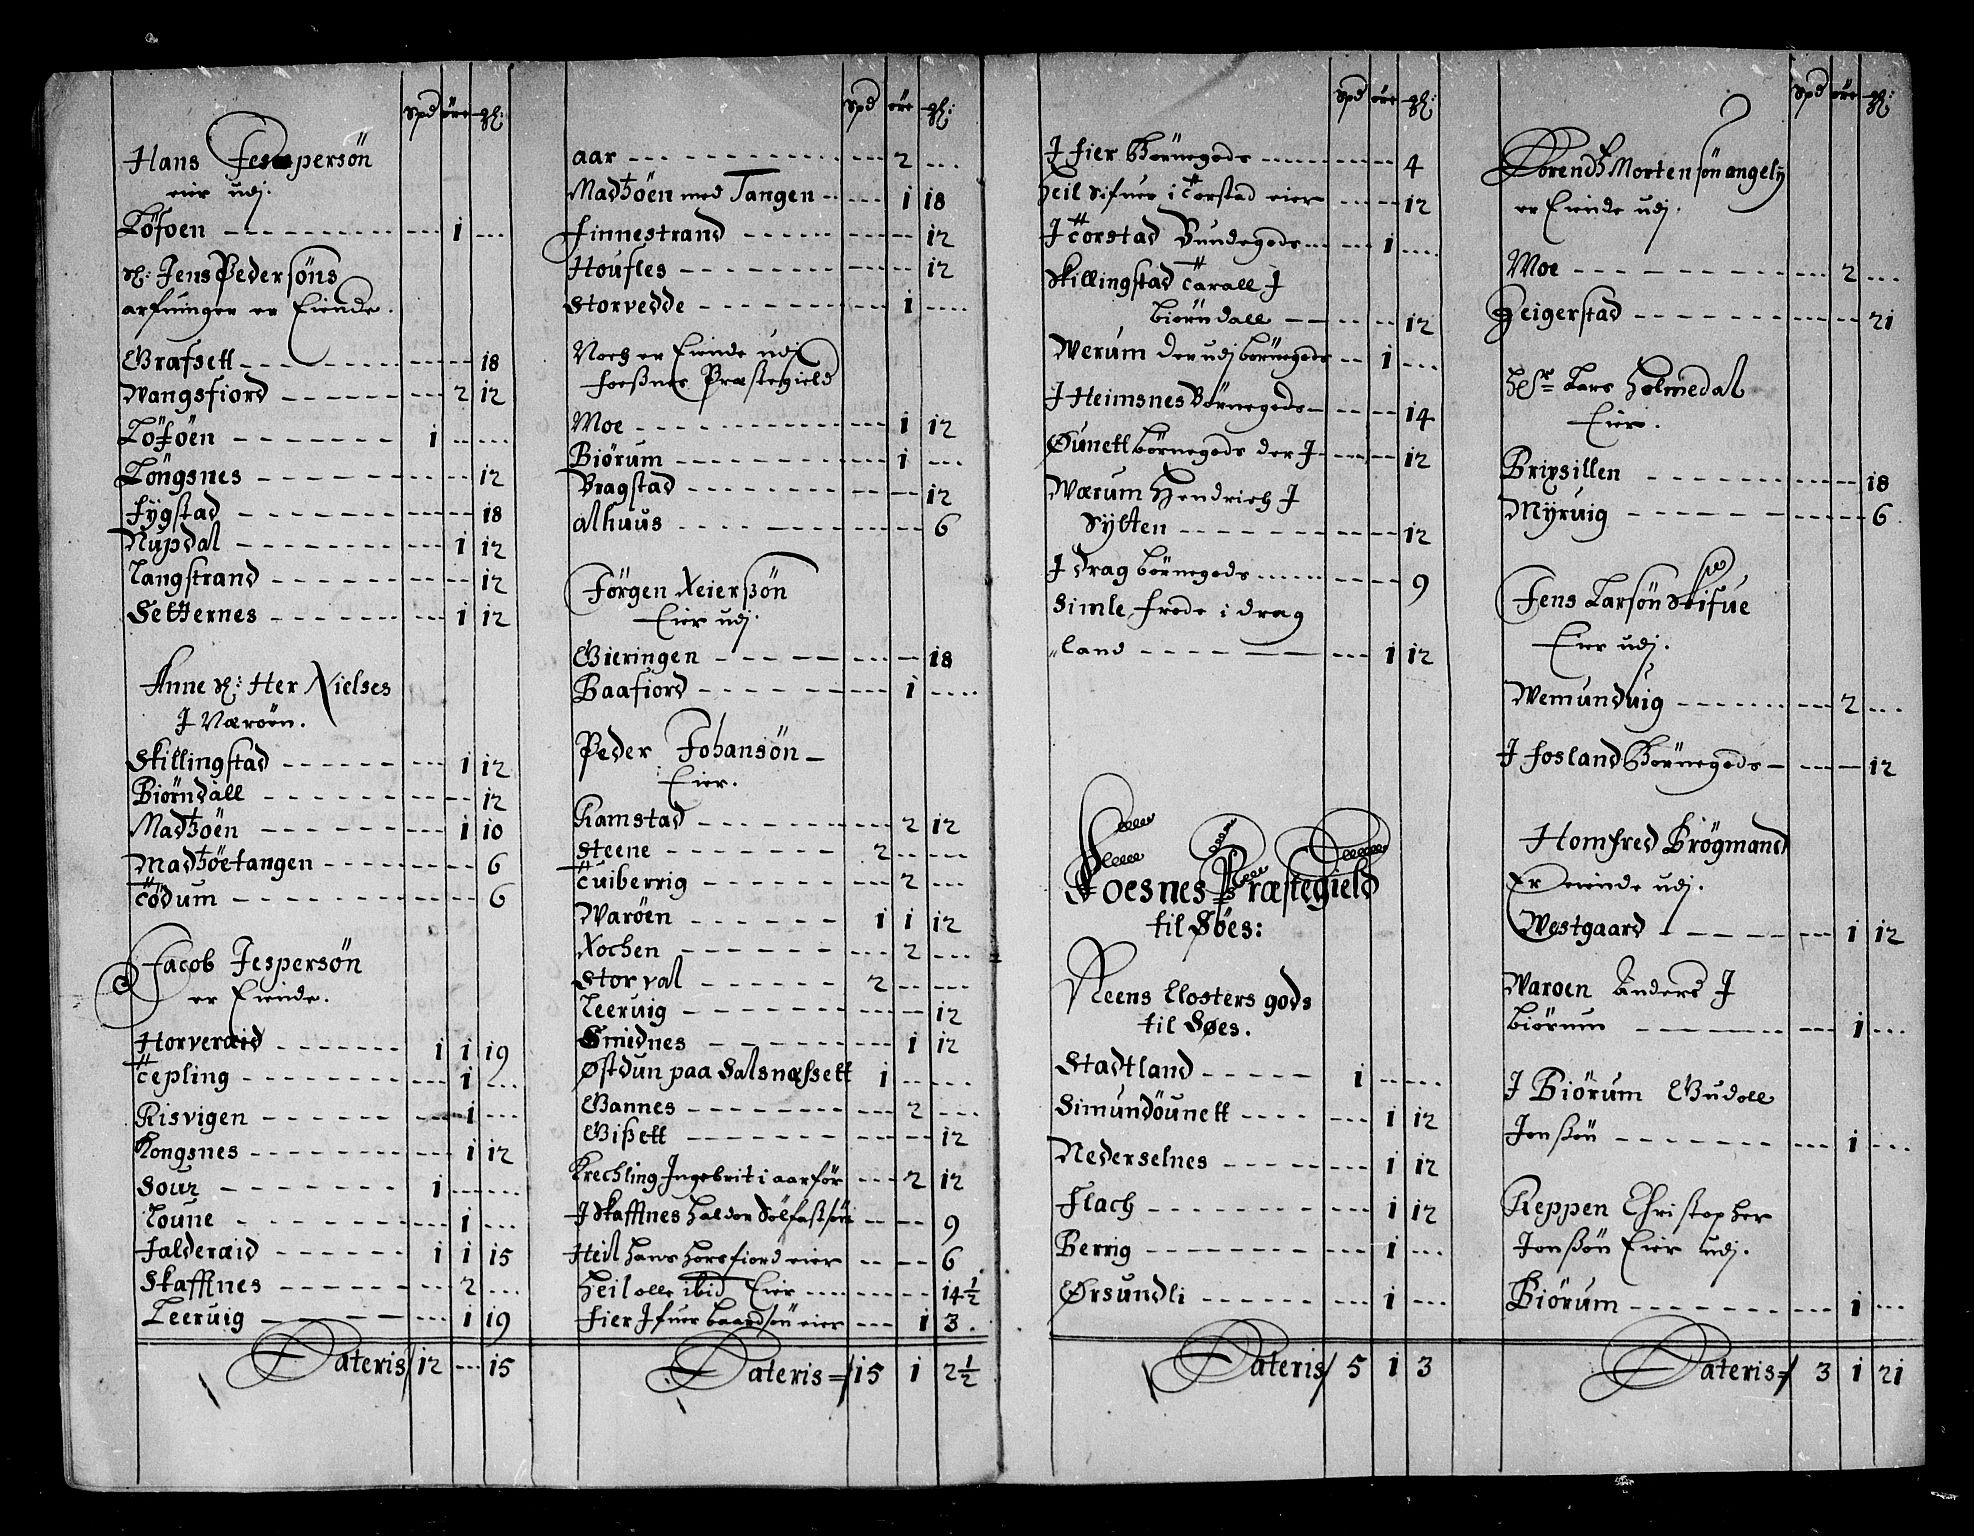 Spd öre
Hans Jespersön
eier udj.
Löfoen 1
Sl: Jens Pedersöns
arfuinger er Eiende.
Grafsett 18
Wangsfiord 2 12
Löföen 1
Löngsnes 12
Fygstad 18
Nupdal 1 12
Langstrand 12
Setternes 1 12
Anne Sl: Her Nielses
J Værøen.
Skillingstad 1 12
Biörndall 12
Madtzöen 1 10
Madtzöetangen 6
Tödum 6
Jacob Jespersön
er Eiende.
Horveræid 1 1 19
Tepling 1
Risvigen 1
Kongsnes 1 12
Sour 1
Loune 1
Falderæid 1 1 15
Skaffnes 2
Leeruig 1 19
Lateris 12 15
Spd öre
aar 2
Madtzöen med Tangen 1 18
Finnestrand 12
Houfles 12
Storvedde 1
Noch er Eiende udj
Foesnes Præstegield
Moe 1 12
Biörum 1
Bragstad 12
Alhuus 6
Jörgen Neierssön
Eier udj.
Gieringen 18
Baafiord 1
Peder Johansön
Eier.
Ramstad 2 12
Steene 2
Tuiberrig 2
Waröen 1 1 12
Xochen 2
Storval 2
Leeruig 12
Smednes 1 12
Østdun paa Salsnæssett 1
Gannes 2
Gissett 12
Krechling Ingebrit i aarför 2 12
J Skaffnes Haldor Sölfastsön 9
Heil Hans Horsfiord eier 6
Heil olle ibid Eier 14 1/2
Fier Jfuer Baardsön eier 1 3.
Lateris 15 1 2 1/2
Spd öre
J Fier Börnegods 4
Heil Sifuer i Torstad eier 12
J Torstad Bundegods 1
Skillingstad Tarall J
Biörndall 12
Werum der udj börnegods 1
J Heimsnes Börnegods 14
Øunett börnegods der J 12
Wærum Hendrich J
Sytten 12
J Drag börnegods 9
Simle frede i drag
land 1 12
Foesnes Præstegield
til Søes:
Reens Closters gods
til Søes.
Stadtland 1
Simundöunett 1 12
Nederselnes 1 12
Flach 1 12
Berrig 1
Ørsundli 1
Lateris 5 1 3
Spd öre
Lorendtz Mortensön angely
er Eiende udj.
Moe 2
Zeigerstad 21
Lars Holmedal
Eier.
Brixsillen 18
Myruig 6
Jens Larsön Skifue
Eier udj.
Wemunduig 2
J Fosland Börnegods 12
Homfred Brögmand
Er eiende udj.
Westgaard 1 12
Waroen Anders J
Biörum 1
J Biörum Gudole
Jonssön 1
Reppen Christopher
Jonssön Eier udj.
Biörum 1
Lateris 3 1 21